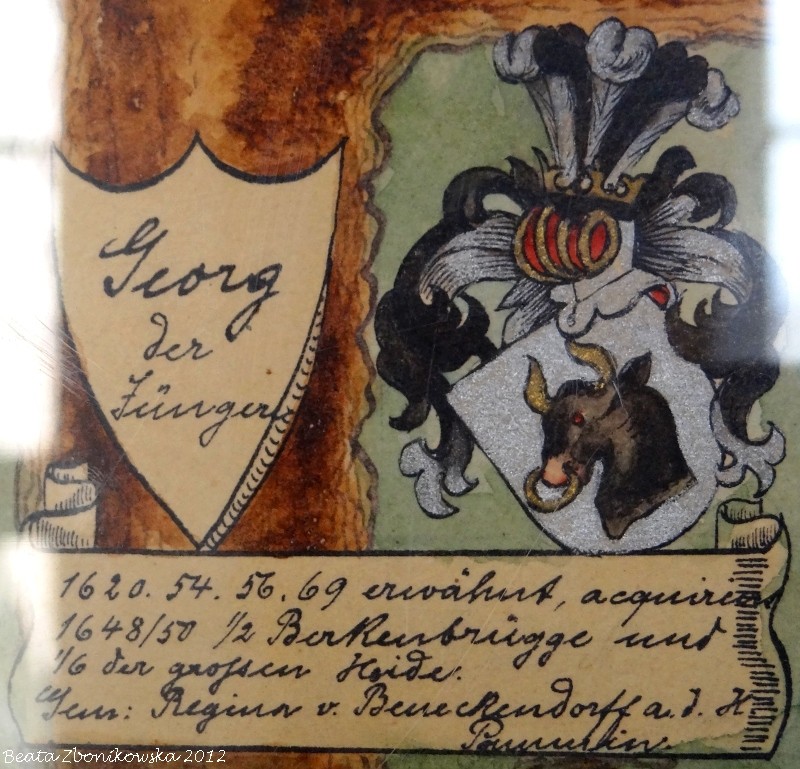 Georg
der
Jüngere
1620. 54. 56. 69 erwähnt, acquirirt
1648/50 1/2 Berkenbrügge und
1/6 der grossen Heide.
Gem: Regina v. Beneckendorff a. d. H
Beata Zbonikowska 2012